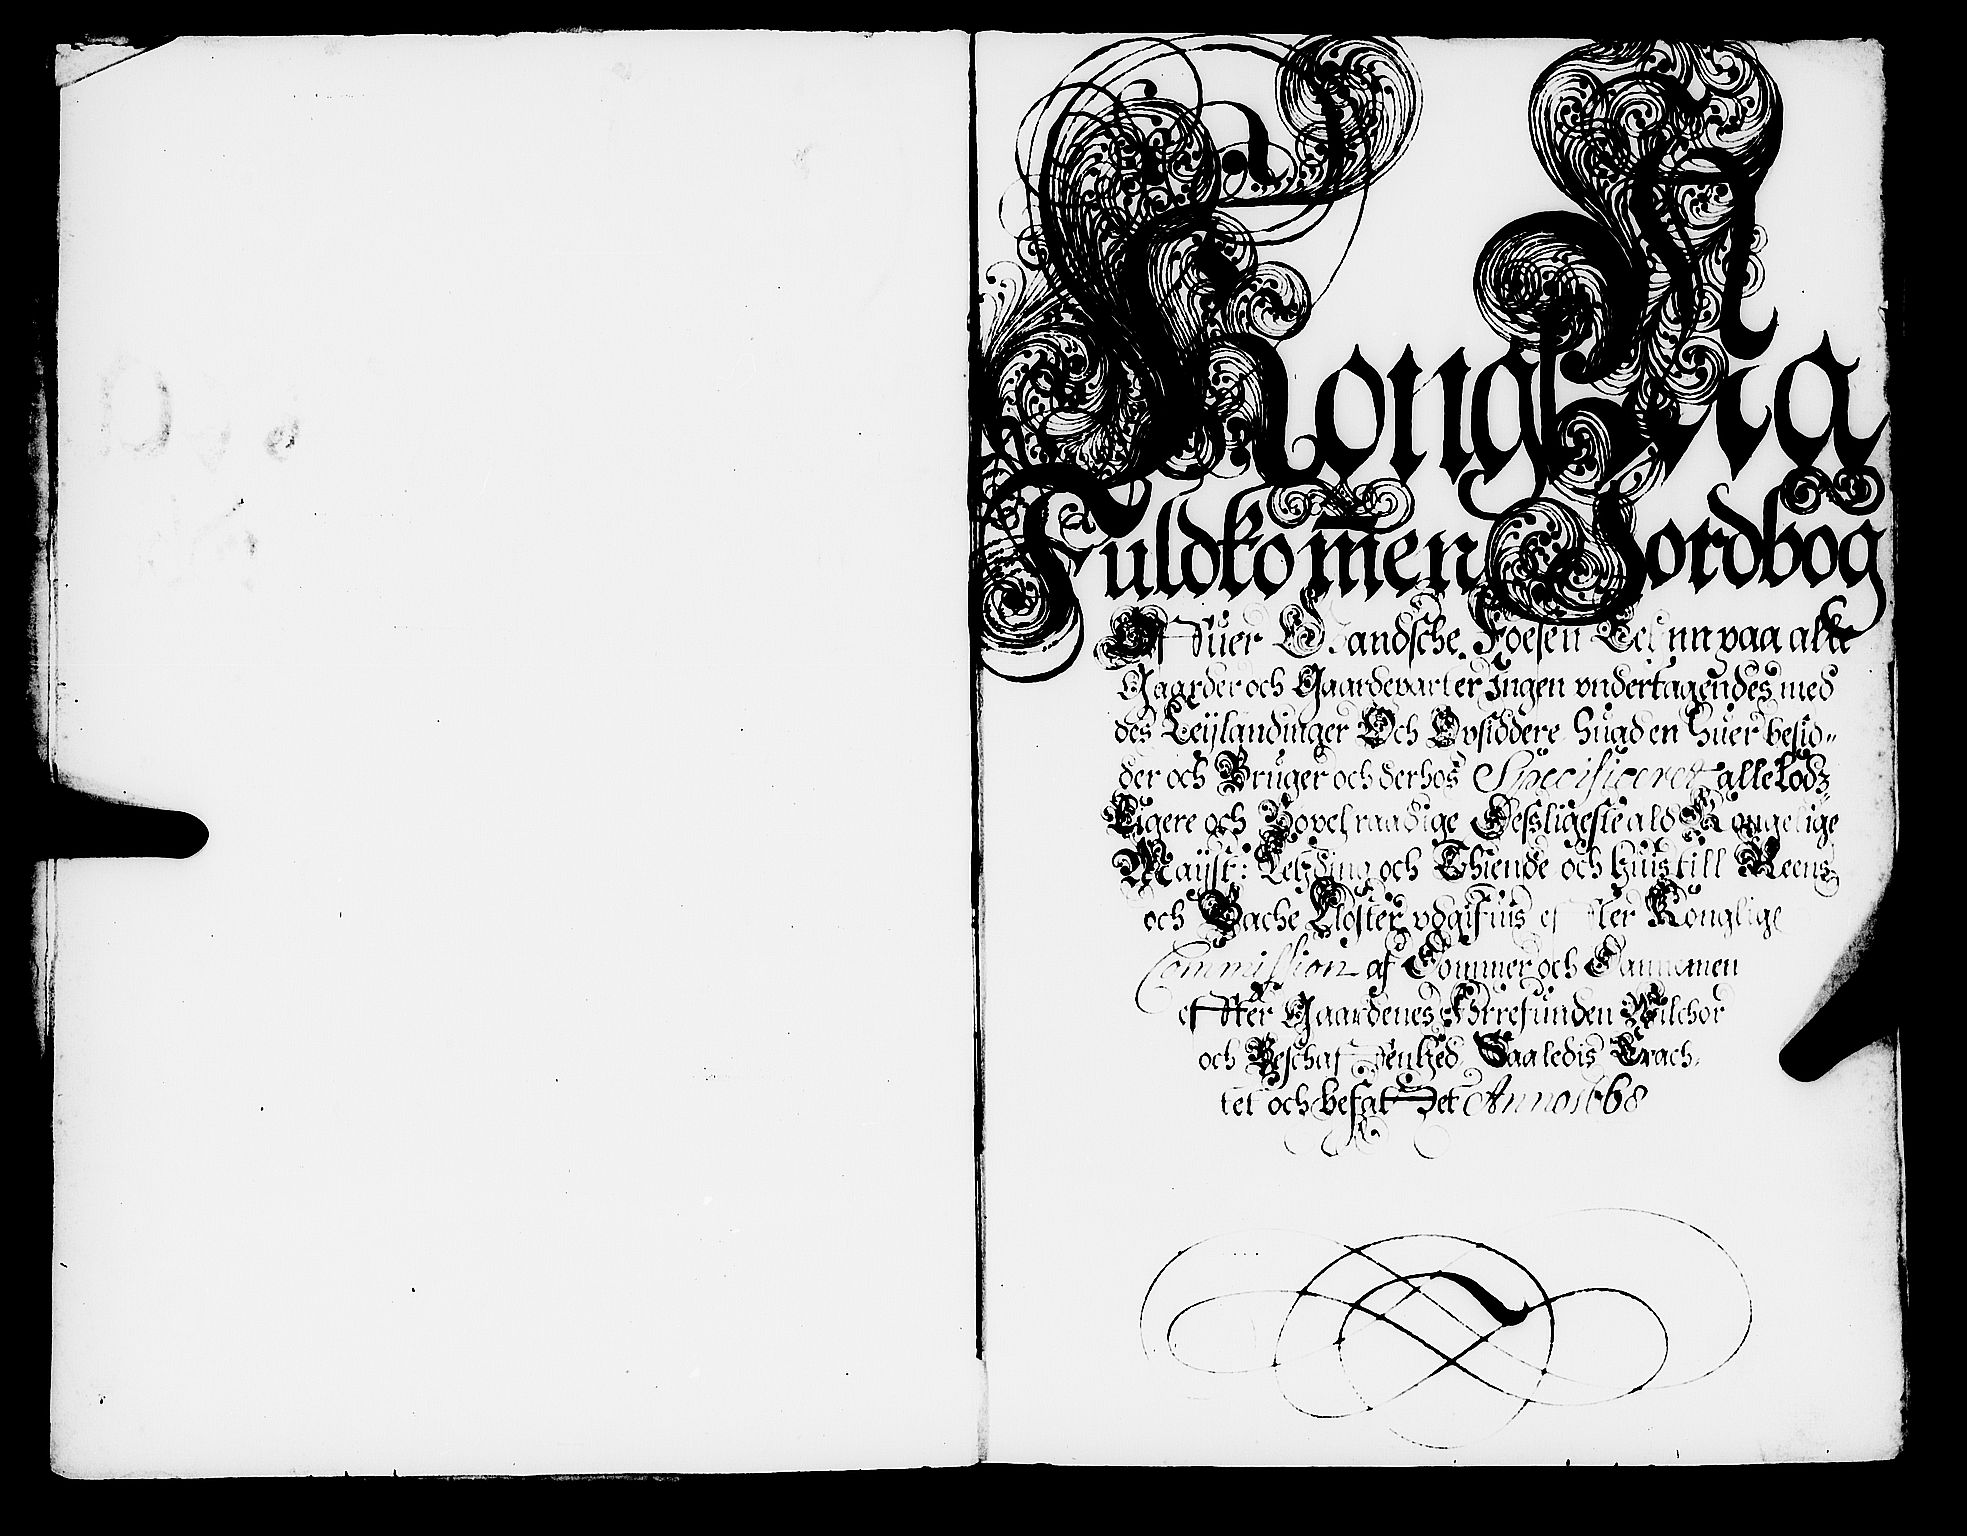 Kongß Ma
Fuldkom̄en Jordbog
Offuer foesen paa alle
Gaarder och Gaardeparter Jngen vndertagendes, med
des Leijlandinger Och Opsiddere huad en huer besid„
der och Bruger och derhos Specificeret alle Lodz„
Eigere och Bøxelraadige Desligeste ald Kongelige
Mayst: Leding och Thiende och huis till Reens
och Bache Closter vdgifuis effter Konglige
Commission af Commer och Dannemen
effter Gaardenes Forrefunden Wilchor
och Beschaffenhed Saaledis Trach„
tet och befat Det Anno 1668